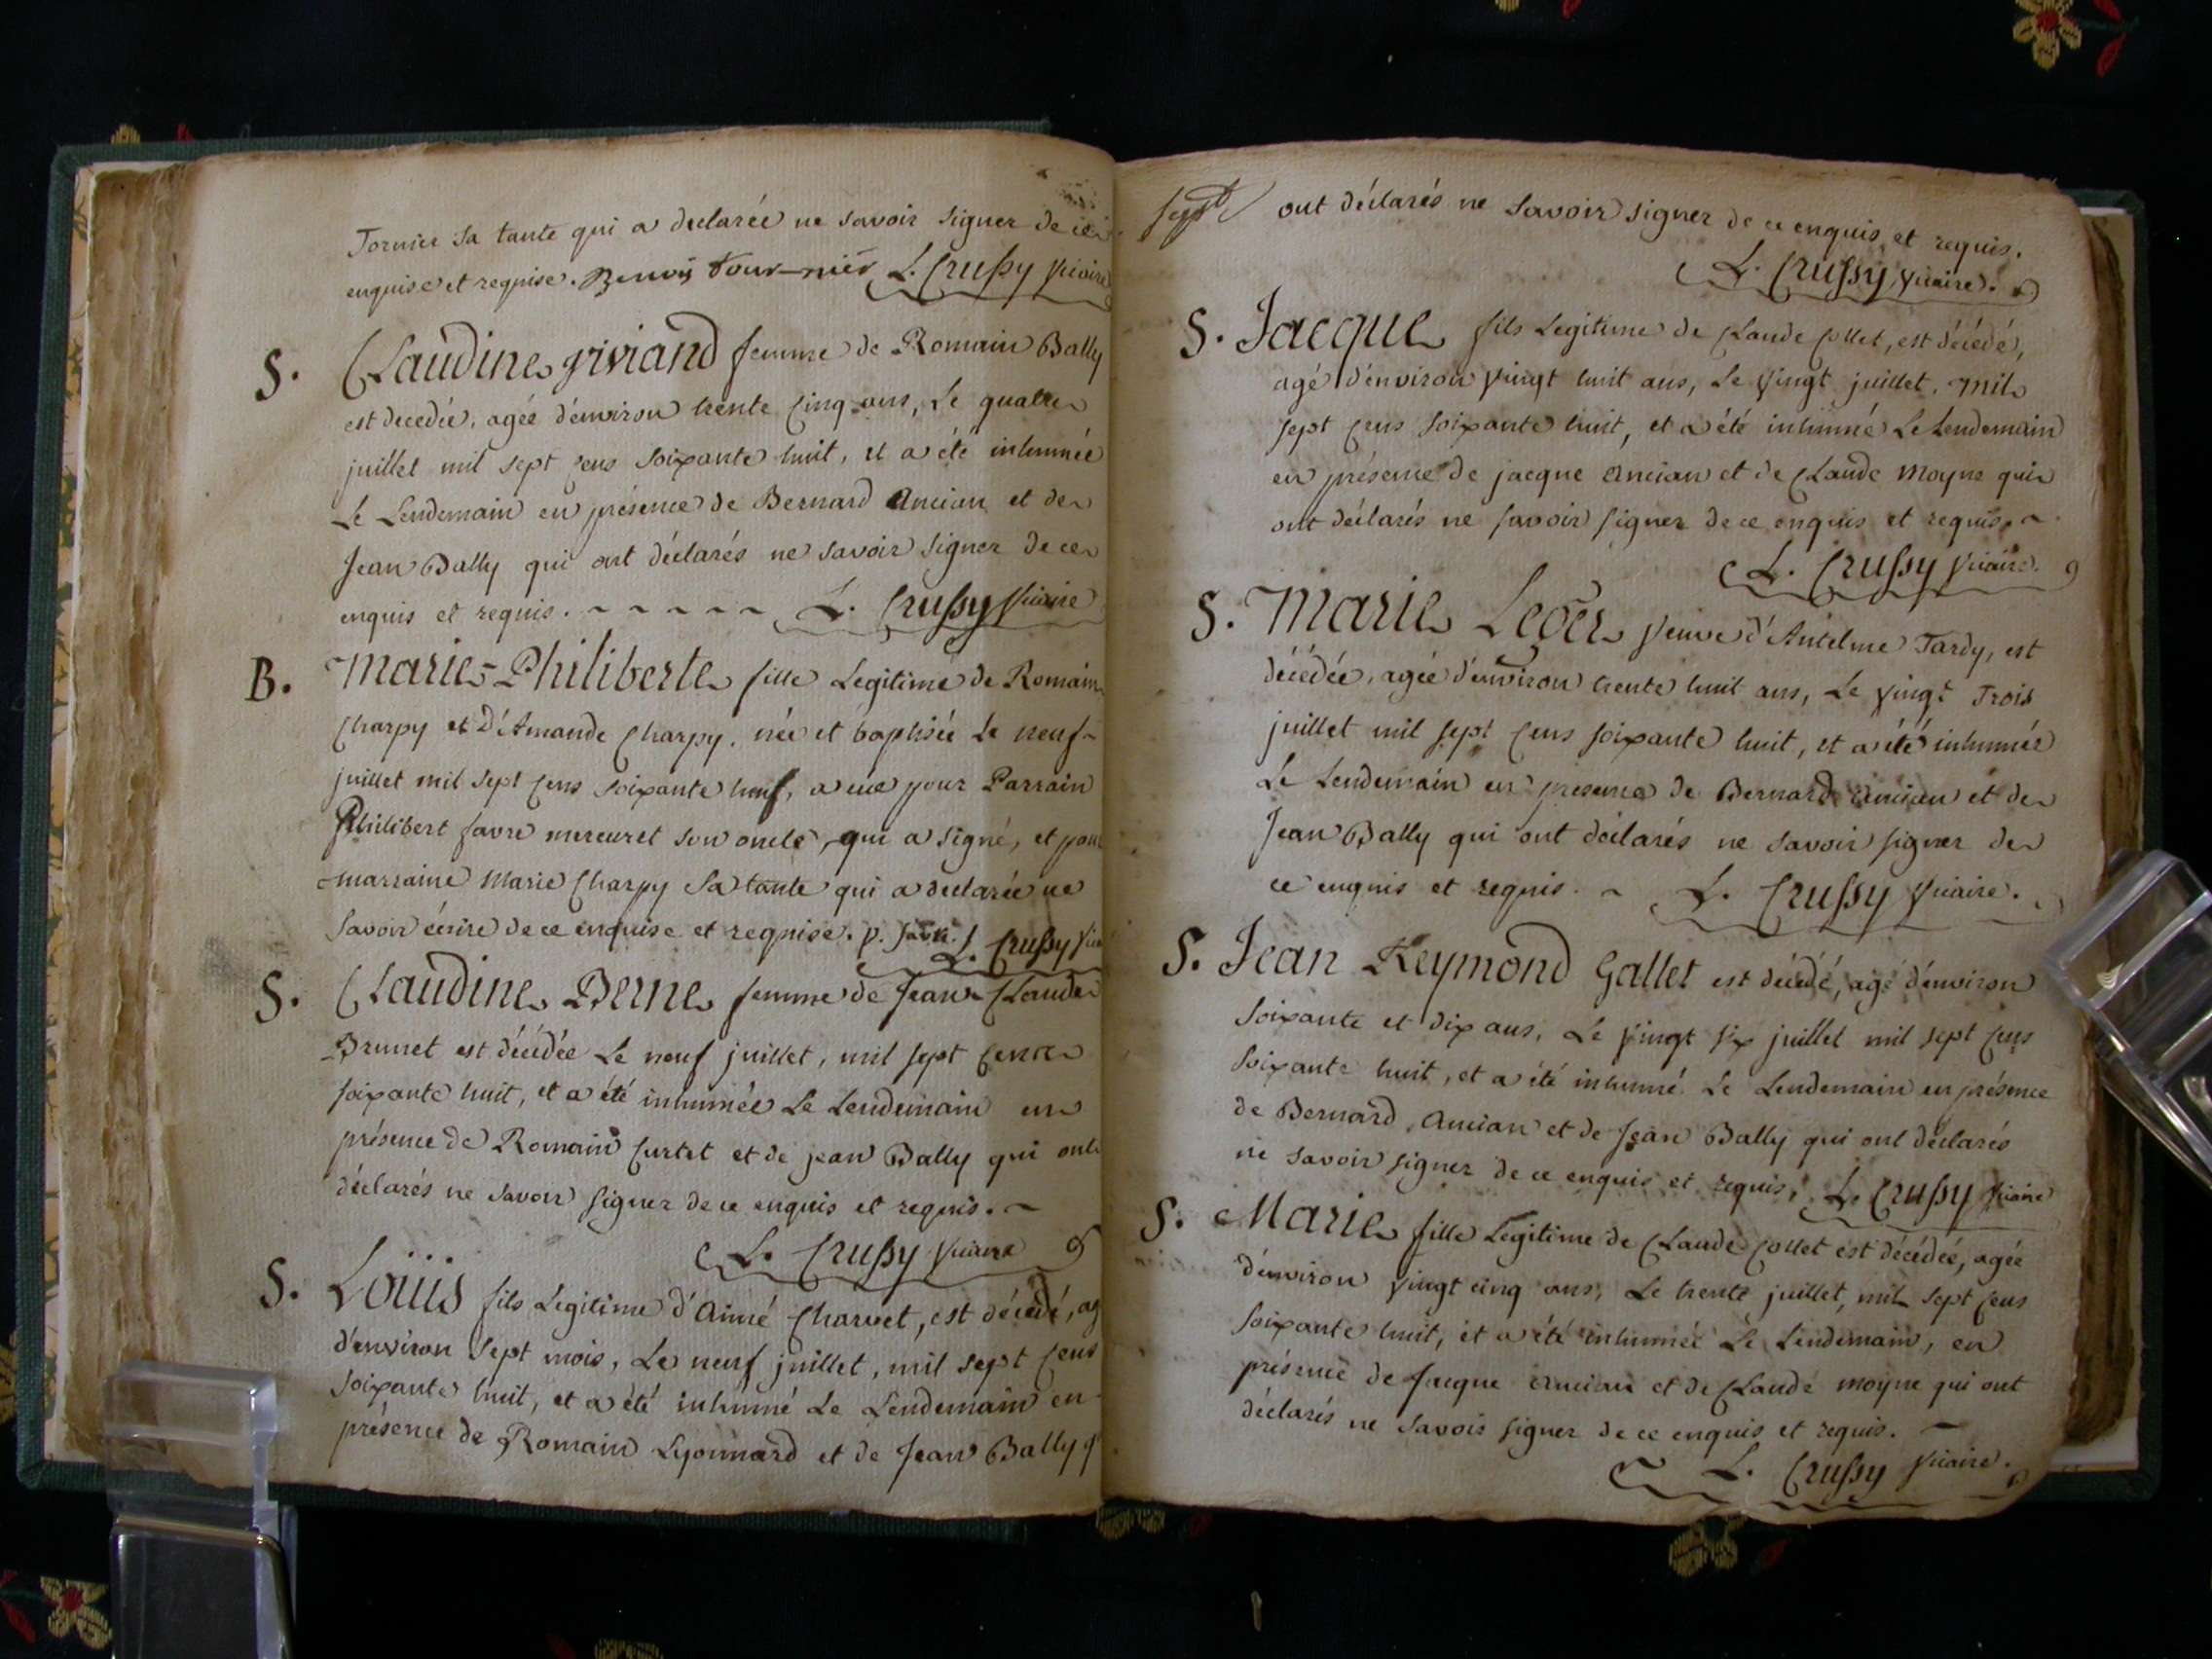 Tornier sa tante qui a declarée ne savoir signer de ce
enquise et requise. Benois tour-nier L. Crussy vicaire
S. Claudine viviand femme de Romain Bally
est decedée, agée d'environ trente cinq ans, Le quatre
juillet mil sept cens soixante huit, et a été inhumée
Le Lendemain en présence de Bernard Ancian et de
Jean Bally qui ont déclarés ne savoir signer de ce
enquis et requis. ~ ~ ~ ~ ~ L. Crussy vicaire
B. Marie-Philiberte fille Legitime de Romain
Charpy et D'Amande Charpy, née et baptisée Le neuf
juillet mil sept cens soixante huit, a eue pour Parrain
Philibert favre mercuret son oncle, qui a signé, et pour
marraine Marie Charpy Sa tante qui a declarée ne
savoir écrire de ce enquise et requise. p. favre L. Crussy vic
S. Claudine Berne femme de Jean-Claude
Brunet est décédée Le neuf juillet, mil sept cens
soixante huit, et a été inhumée Le Lendemain en
présence de Romain Curtet et de jean Bally qui ont
déclarés ne savoir signer de ce enquis et requis. ~
L. Crussy vicaire
S. Loüis fils Legitime d'Aimé Charvet, est décédé, ag
d'environ sept mois, Le neuf juillet, mil sept cens
soixante huit, et a été inhumé Le Lendemain en
présence de Romain Lyonnard et de Jean Bally q
ont déclarés ne savoir signer de ce enquis et requis.
L. Crussy vicaire.
S. Jacque fils Legitime de Claude Collet, est décédé,
agé d'environ vingt huit ans, Le vingt juillet, mil
sept cens soixante huit, et a été inhumé Le Lendemain
en présence de jacque ancian et de Claude Moyne qui
ont déclarés ne savoir signer de ce enquis et requis. ~
L. Crussy vicaire.
S. Marie Leger veuve d'Antelme Tardy, est
décédée, agée d'environ trente huit ans, Le vingt Trois
juillet mil sept cens soixante huit, et a été inhumée
Le Lendemain en presence de Bernard ancian et de
Jean Bally qui ont déclarés ne savoir signer de
ce enquis et requis. ~ L. Crussy vicaire.
S. Jean Reymond Gallet est décédé, agé d'environ
soixante et dix ans, Le vingt six juillet mil sept cens
soixante huit, et a été inhumé Le Lendemain en présence
de Bernard Ancian et de Jean Bally qui ont déclarés
ne savoir signer de ce enquis et requis, L. Crussy vicaire
S. Marie fille Legitime de Claude Collet est décédée, agée
d'environ vingt cinq ans, Le trente juillet, mil sept cens
soixante huit, et a été inhumée Le Lendemain, en
présence de Jacque ancian et de Claude moyne qui ont
déclarés ne savoir signer de ce enquis et requis. ~
L. Crussy vicaire.